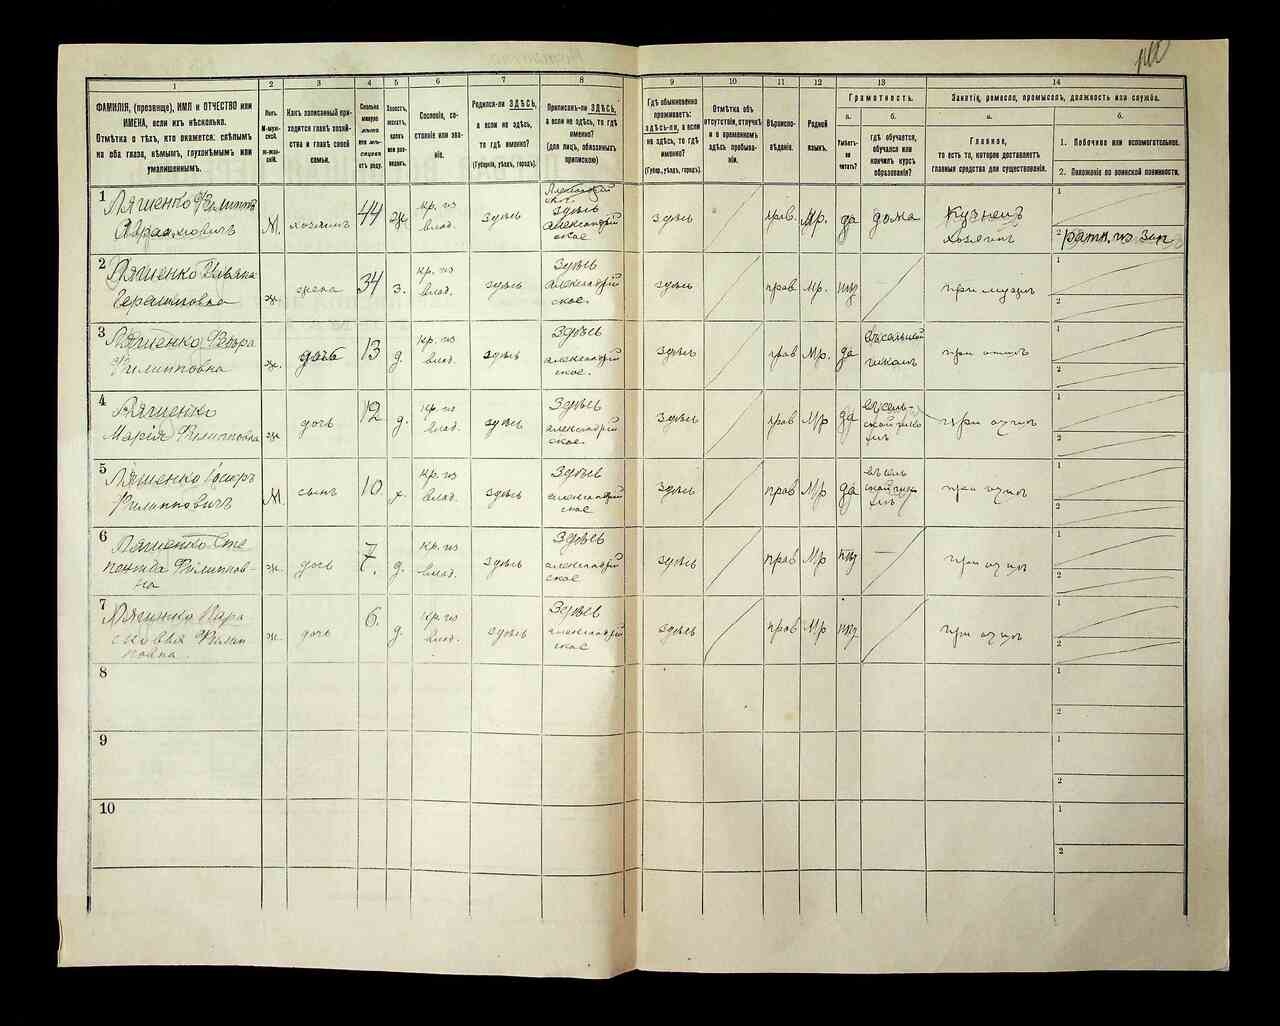 1
2
3
4
5
6
7
8
9
10
11
12
13
14
ФАМИЛІЯ, (прозвище), ИМЯ и ОТЧЕСТВО или
ИМЕНА, если ихъ нѣсколько.
Отмѣтка о тѣхъ, кто окажется: слѣпымъ
на оба глаза, нѣмымъ, глухонѣмымъ или
умалишеннымъ.
Полъ.
М-муж-
ской.
ж-жен-
скій.
Какъ записанный при-
ходится главѣ хозяй-
ства и главѣ своей
семьи.
Сколько
минуло
лѣтъ
или мѣ-
сяцевъ
отъ роду.
Холостъ,
женатъ,
вдовъ
или раз-
веденъ.
Сословіе, со-
стояніе или зва-
ніе.
Родился-ли ЗДѢСЬ,
а если не здѣсь,
то гдѣ именно?
(Губернія, уѣздъ, городъ).
Приписанъ-ли ЗДѢСЬ,
а если не здѣсь, то гдѣ
именно?
(для лицъ, обязанныхъ
припискою)
Гдѣ обыкновенно
проживаетъ:
здѣсь-ли, а если
не здѣсь, то гдѣ
именно?
(Губер., уѣздъ, городъ).
Отмѣтка объ
отсутствіи, отлучкѣ
и о временномъ
здѣсь пребыва-
ніи.
Вѣроиспо-
вѣданіе.
Родной
языкъ.
Грамотность.
а.
Умѣетъ-
ли
читать?
б.
гдѣ обучается,
обучался или
кончилъ курсъ
образованія?
Занятіе, ремесло, промыселъ, должность или служба.
а.
Главное,
то есть то, которое доставляетъ
главныя средства для существованія.
б.
1. Побочное или вспомогательное.
2. Положеніе по воинской повинности.
1 Ляшенко Филиппъ
Авраамовичъ
М. хозяинъ 44 ж кр. из
влад. здѣсь
здѣсь
Александрій
ское
здѣсь прав. Мр. да дома Кузнецъ
хозяинъ
1
2 ратн. из зап
2 Ляшенко Ульяна
Герасимовна
ж. жена 34 з. кр. из
влад. здѣсь Здѣсь
александрій
ское.
здѣсь прав Мр. при мужѣ
1
2
3 Ляшенко Федора
Филипповна
ж. дочь 13 д. кр. из
влад. здѣсь Здѣсь
александрій
ское.
здѣсь прав Мр. да въ сельской
школѣ при отцѣ
1
2
4 Ляшенко
Марія Филипповна
ж дочь 12 д. кр. из
влад. здѣсь Здѣсь
александрій
ское.
Здѣсь прав Мр да въ сель-
ской шко
лѣ при отцѣ
1
2
5 Ляшенко
Филипповичъ
М. сынъ 10 х. кр. из
влад. здѣсь Здѣсь
александрій
ское
Здѣсь прав Мр да въ сель
ской шко
лѣ при отцѣ
1
2
6 Ляшенко Сте
Филиппов-
на
ж. дочь 7. д. кр. из
влад. здѣсь Здѣсь
александрій
ское
здѣсь прав Мр при отцѣ
1
2
7 Ляшенко Пара
сковья Филип
повна
ж. дочь 6. д. кр. из
влад. здѣсь Здѣсь
александрій
ское
здѣсь прав Мр при отцѣ
1
2
8
1
2
9
1
2
10
1
2